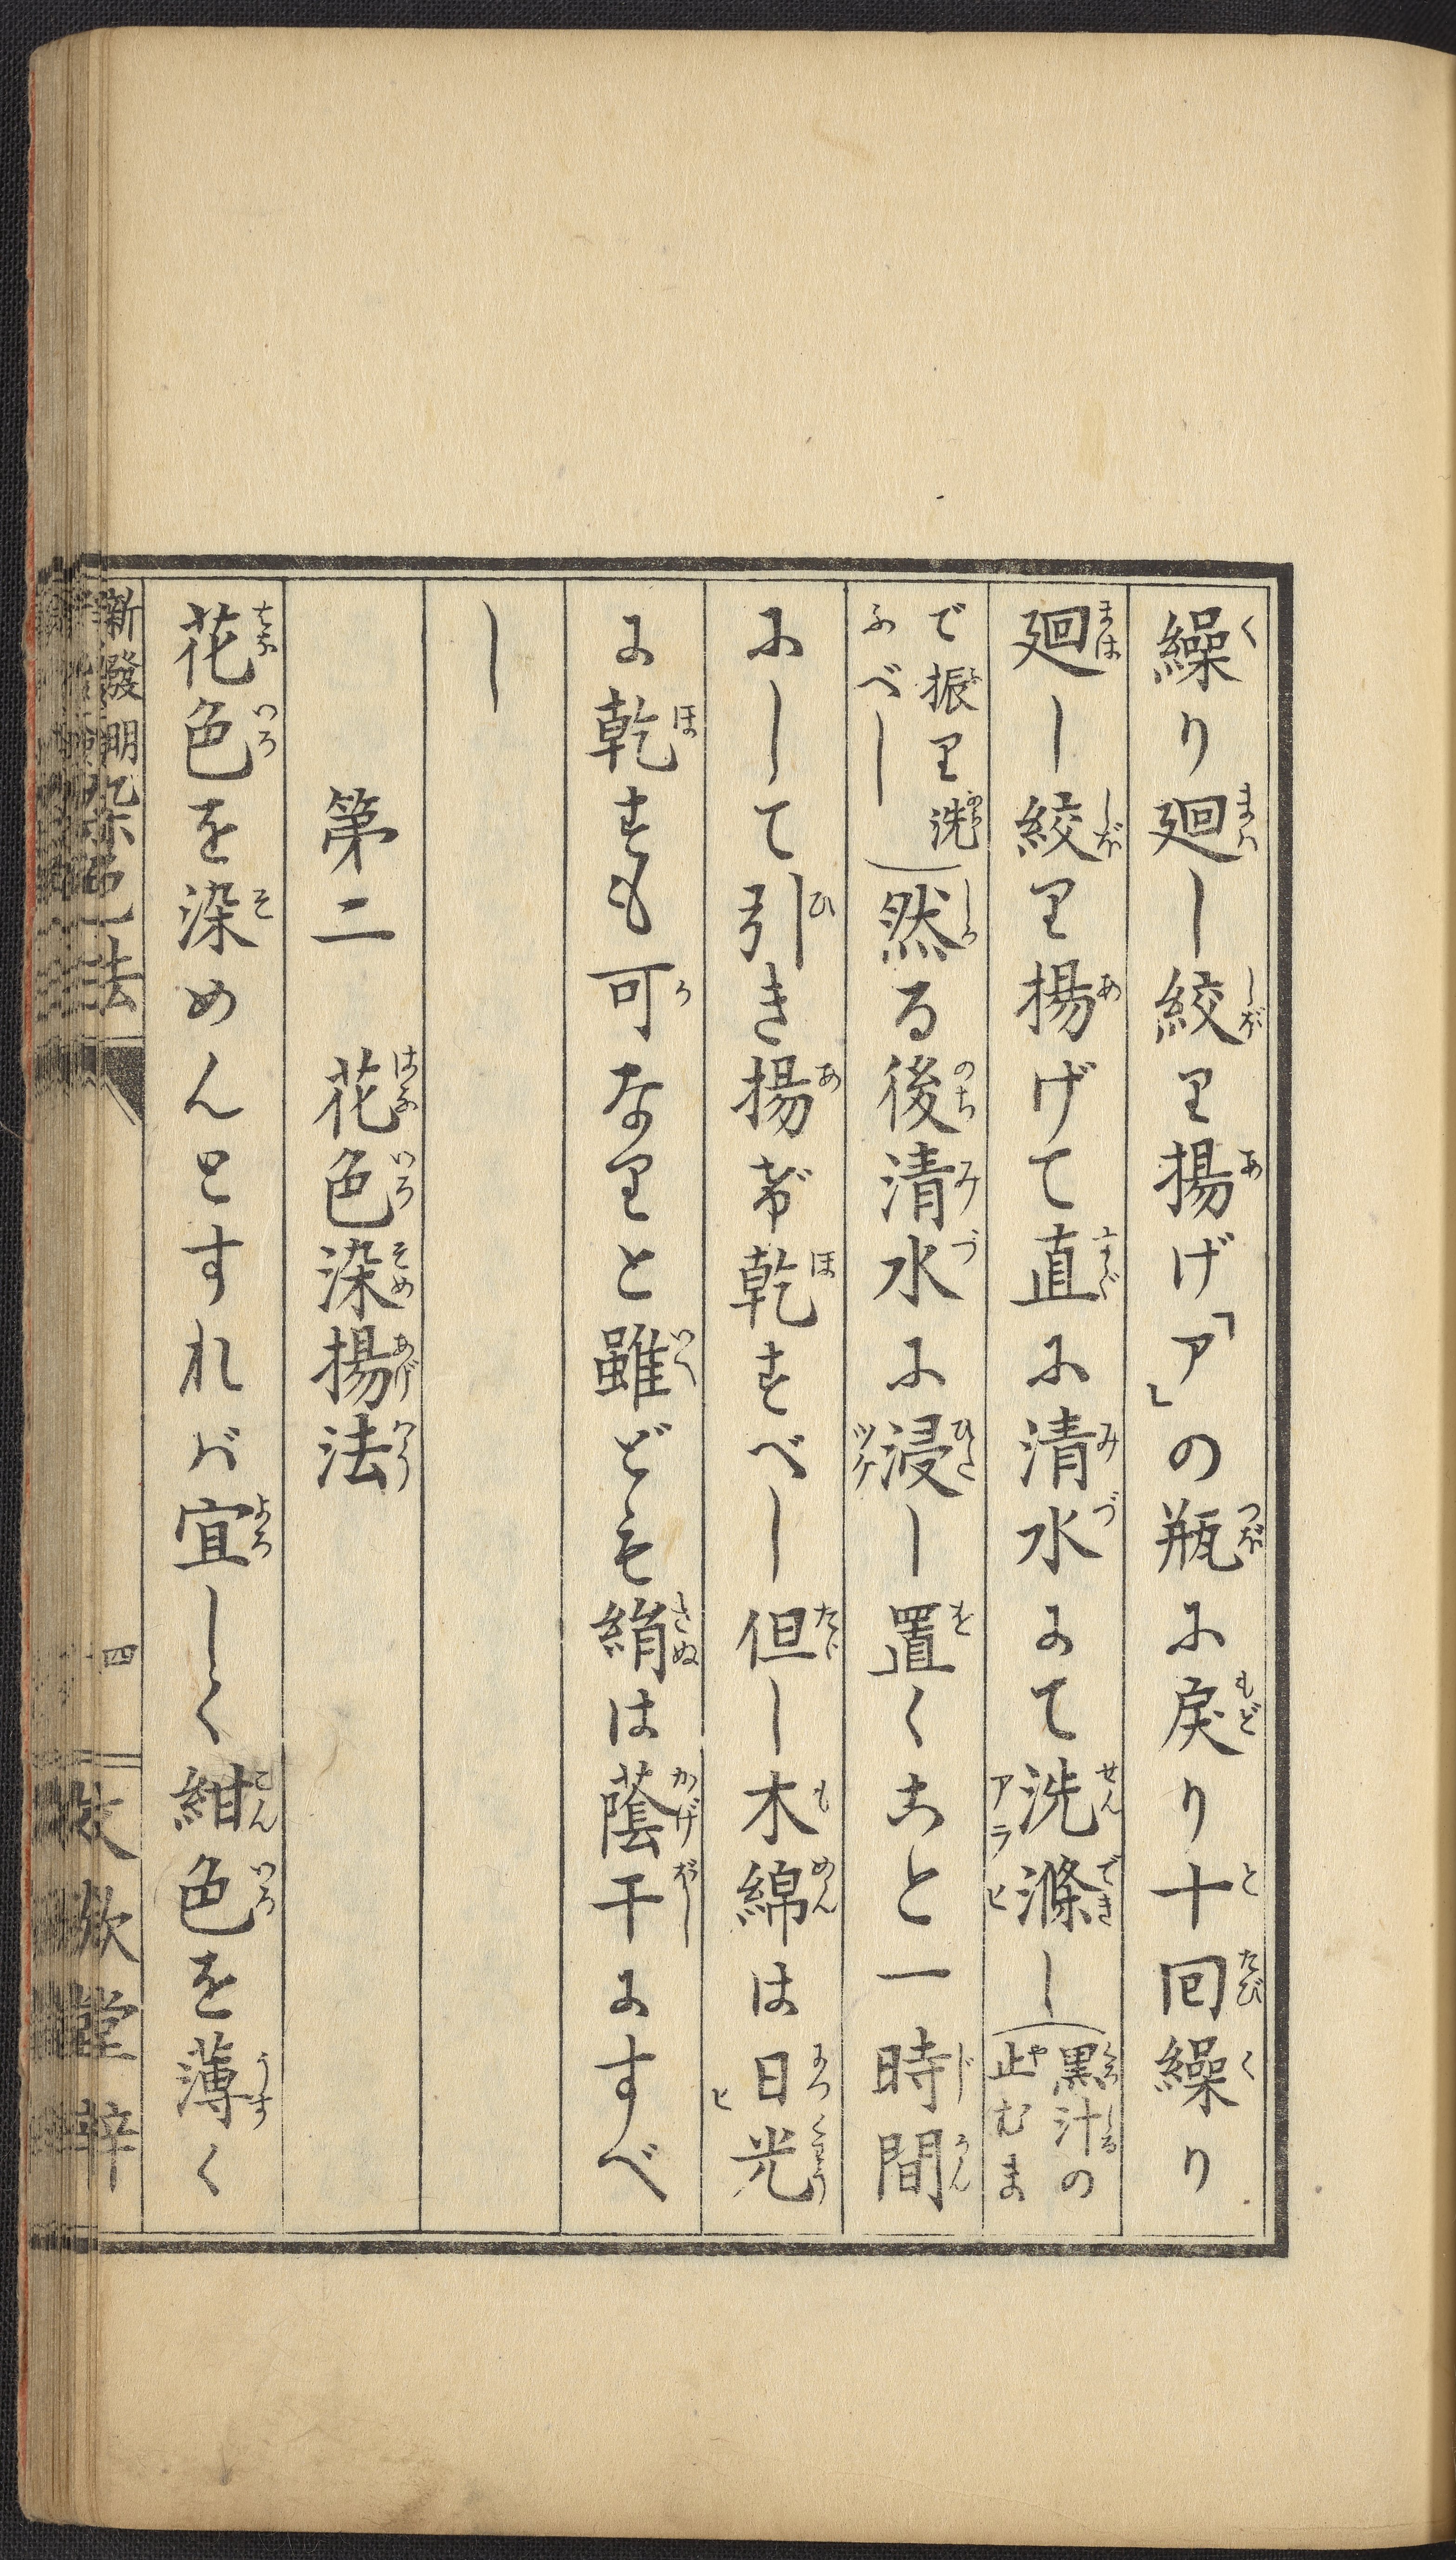 繰り廻し絞り揚げ「ア」の瓶に戻り十回繰り
廻し絞り揚げて直に清水にて洗滌し(黒汁の
止むま
で振り洗
ふべし)然る後清水に浸し置くこと一時間
にして引き揚げ乾すべし但し木綿は日光
に乾すも可なりと雖ども絹は蔭干にすべ
し
第二 花色染揚法
花色を染めんとすれバ宜しく紺色を薄く
新發明染色法
四